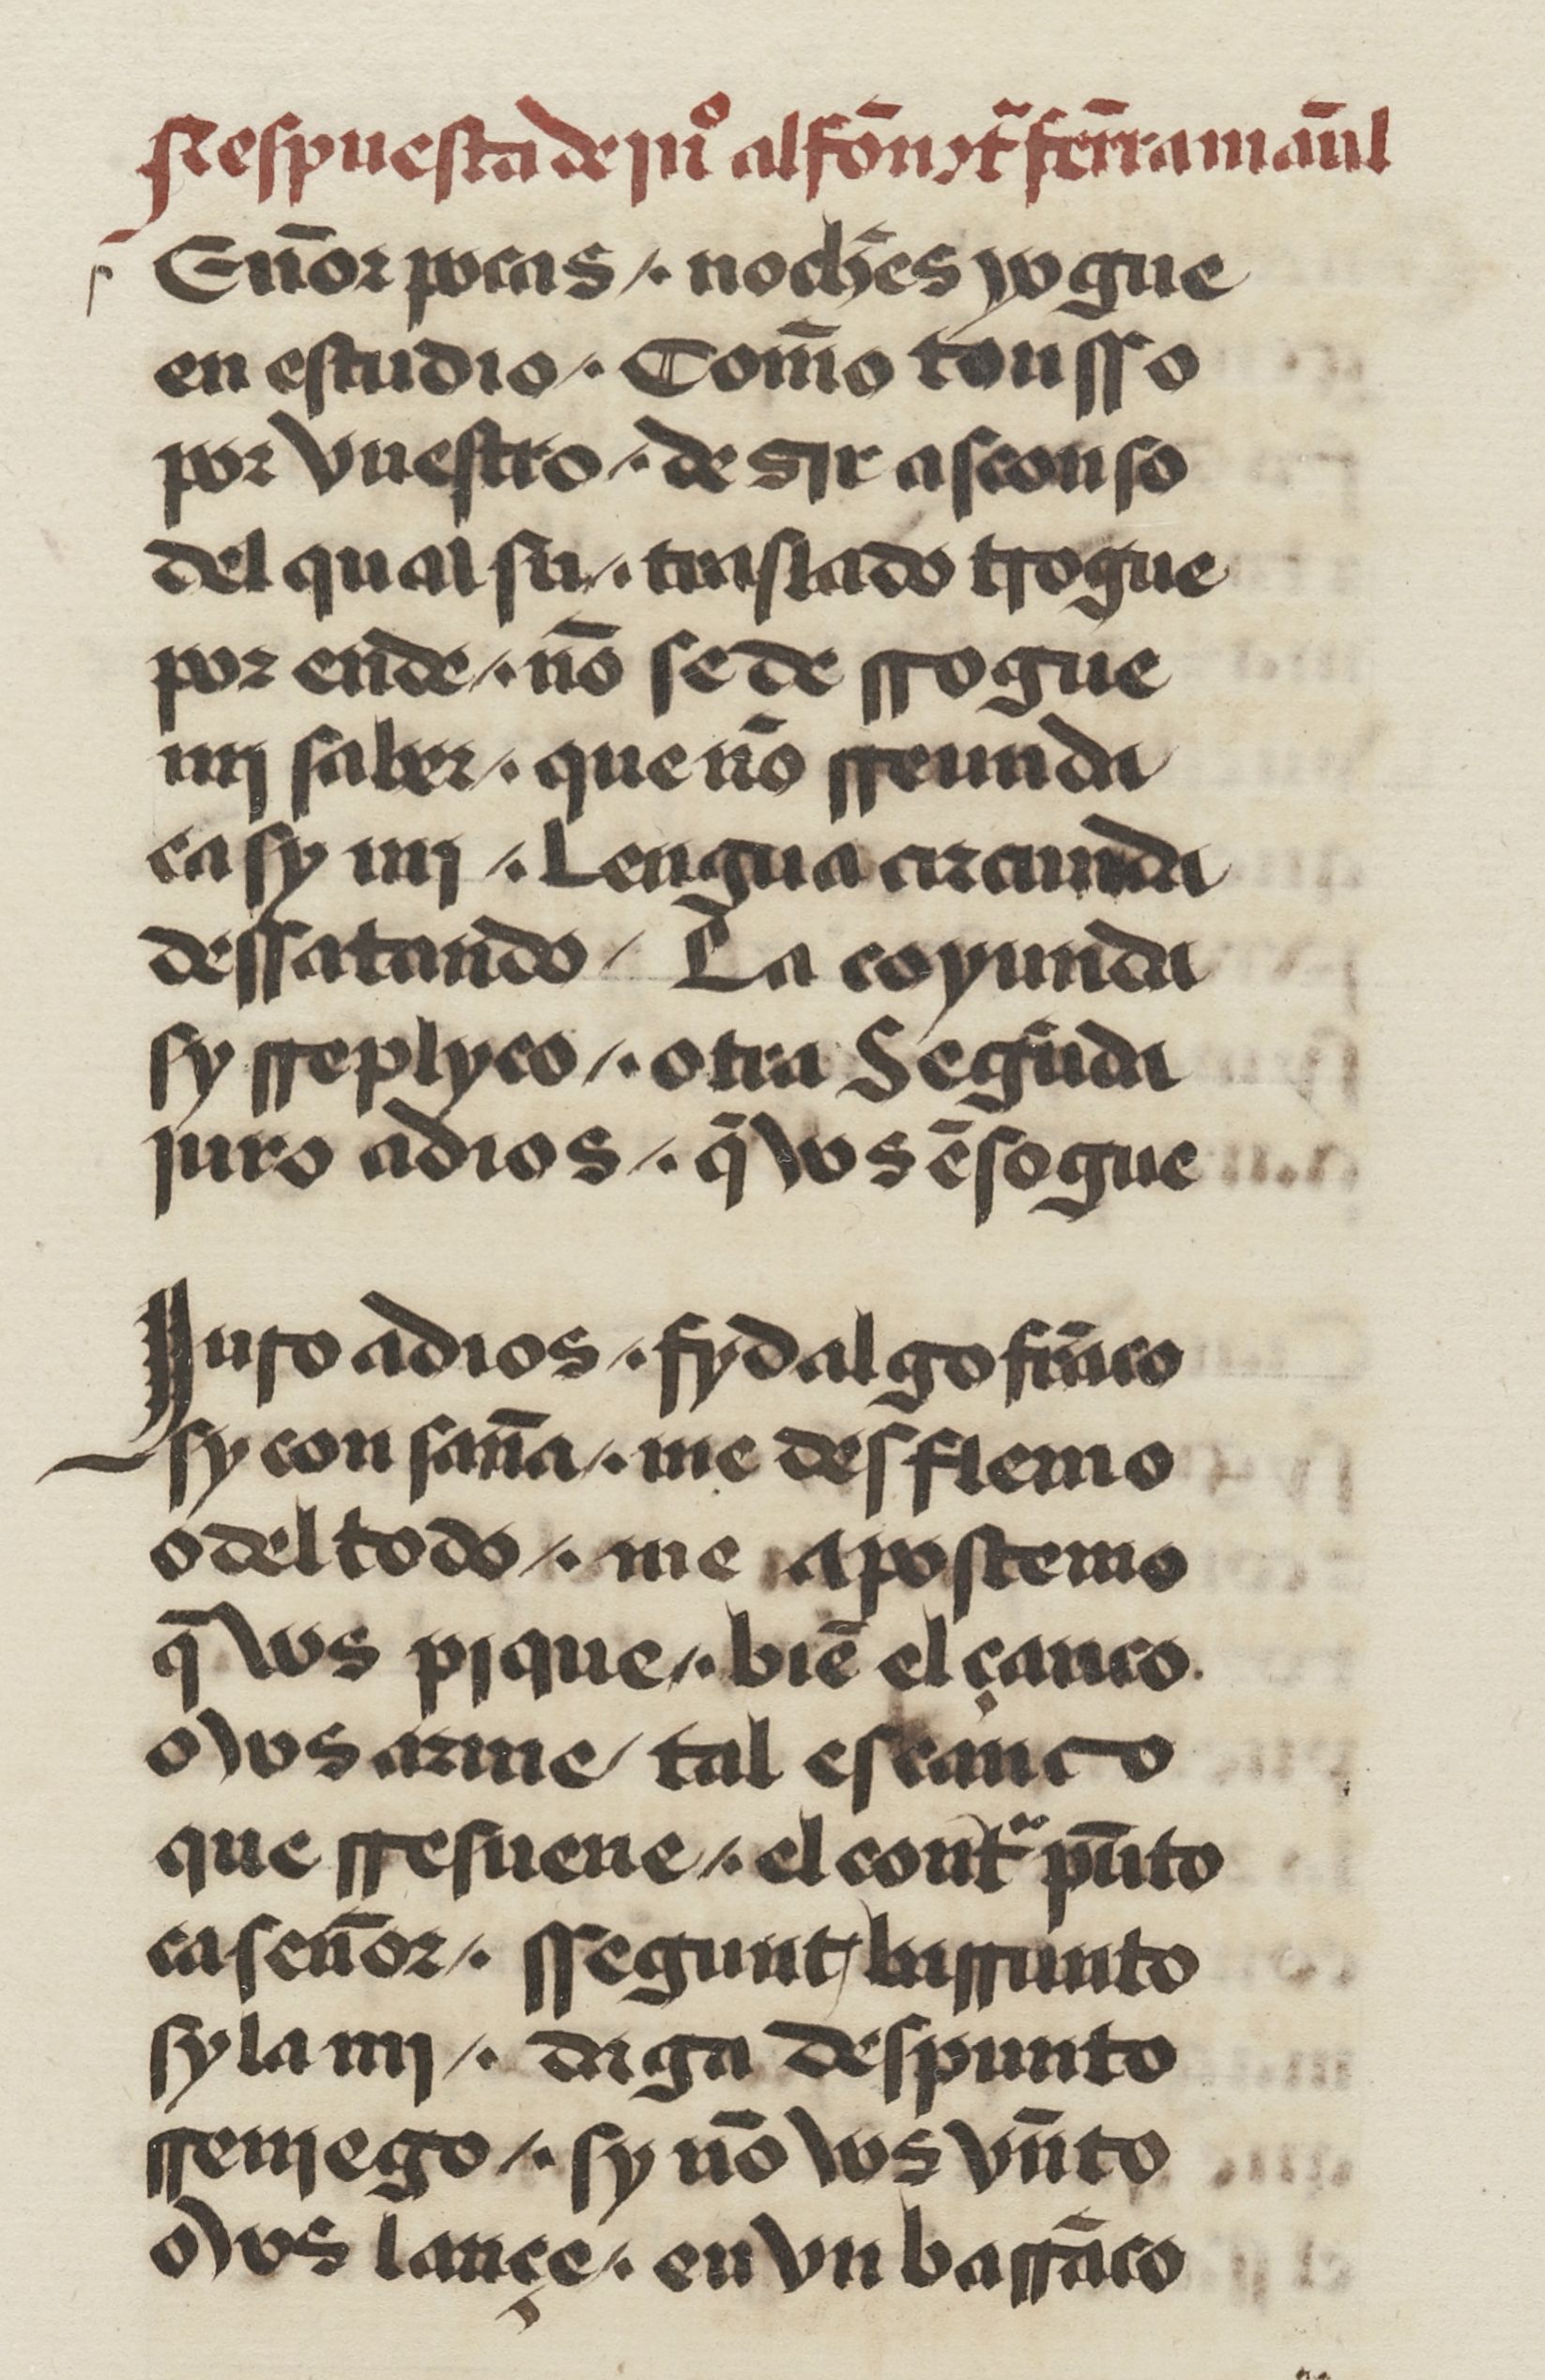 Respuesta de juº alfōn ꝯtͣ ferrā maūl
Sēnor pocas ./. noches yogue
en estudio ./. Com̄o tonsso
por vuestro ./. desir asconso
del qual su ./. traslado troque
por ende ./. nō se derrogue
mi saber ./. que nō rreunda
ca sy mi ./. lengua circunda
dessatando / La coyunda
sy rreplyco ./. otra Segūda
juro a dios ./. q̄ vos ēsogue
Juro a dios ./. fydalgo frāco
sy con saña ./. me desflemo
o del todo ./. me apostemo
q̄ vos pique ./. biē el çanco
o vos arme / tal escanco
que rresuene ./. el contͣ pūto
ca señor ./. ssegunt barrunto
sy la mi ./. daga despunto
rreniego ./. sy nō vos vn̄to
o vos lançe ./. en vn barrāco